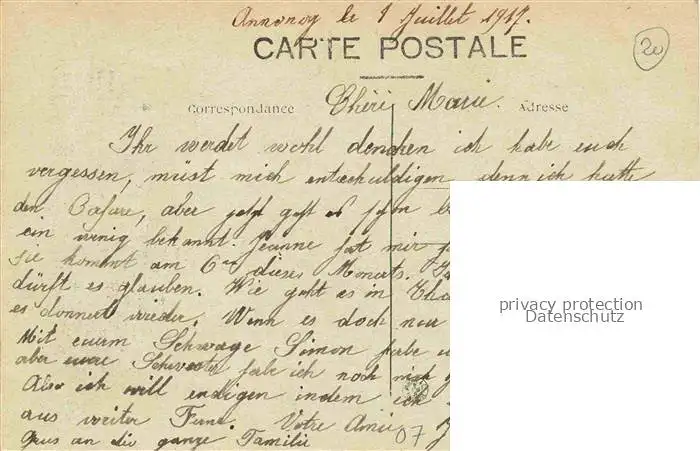 Annonay le 1 Juillet 1917.
CARTE POSTALE
20
Correspondance
Chérie Marie.
Adresse
Ihr werdet wohl dencken ich habe euch
vergessen, müst mich entschuldigen denn ich hatte
den Cafare, aber jetzt geht es schon
ein wenig bekannt. Jeanne hat mir
sie kommt am 6ten dieses Monats.
dürft es glauben. Wie geht es in
es donnert wieder. Wenn es doch nur
Mit eurem Schwage Simon habe
aber eure Schwester hab ich noch
Also ich will endigen indem ich
aus weiter Ferne. Votre Amie
Grus an die ganze Familie
07
privacy protection
Datenschutz